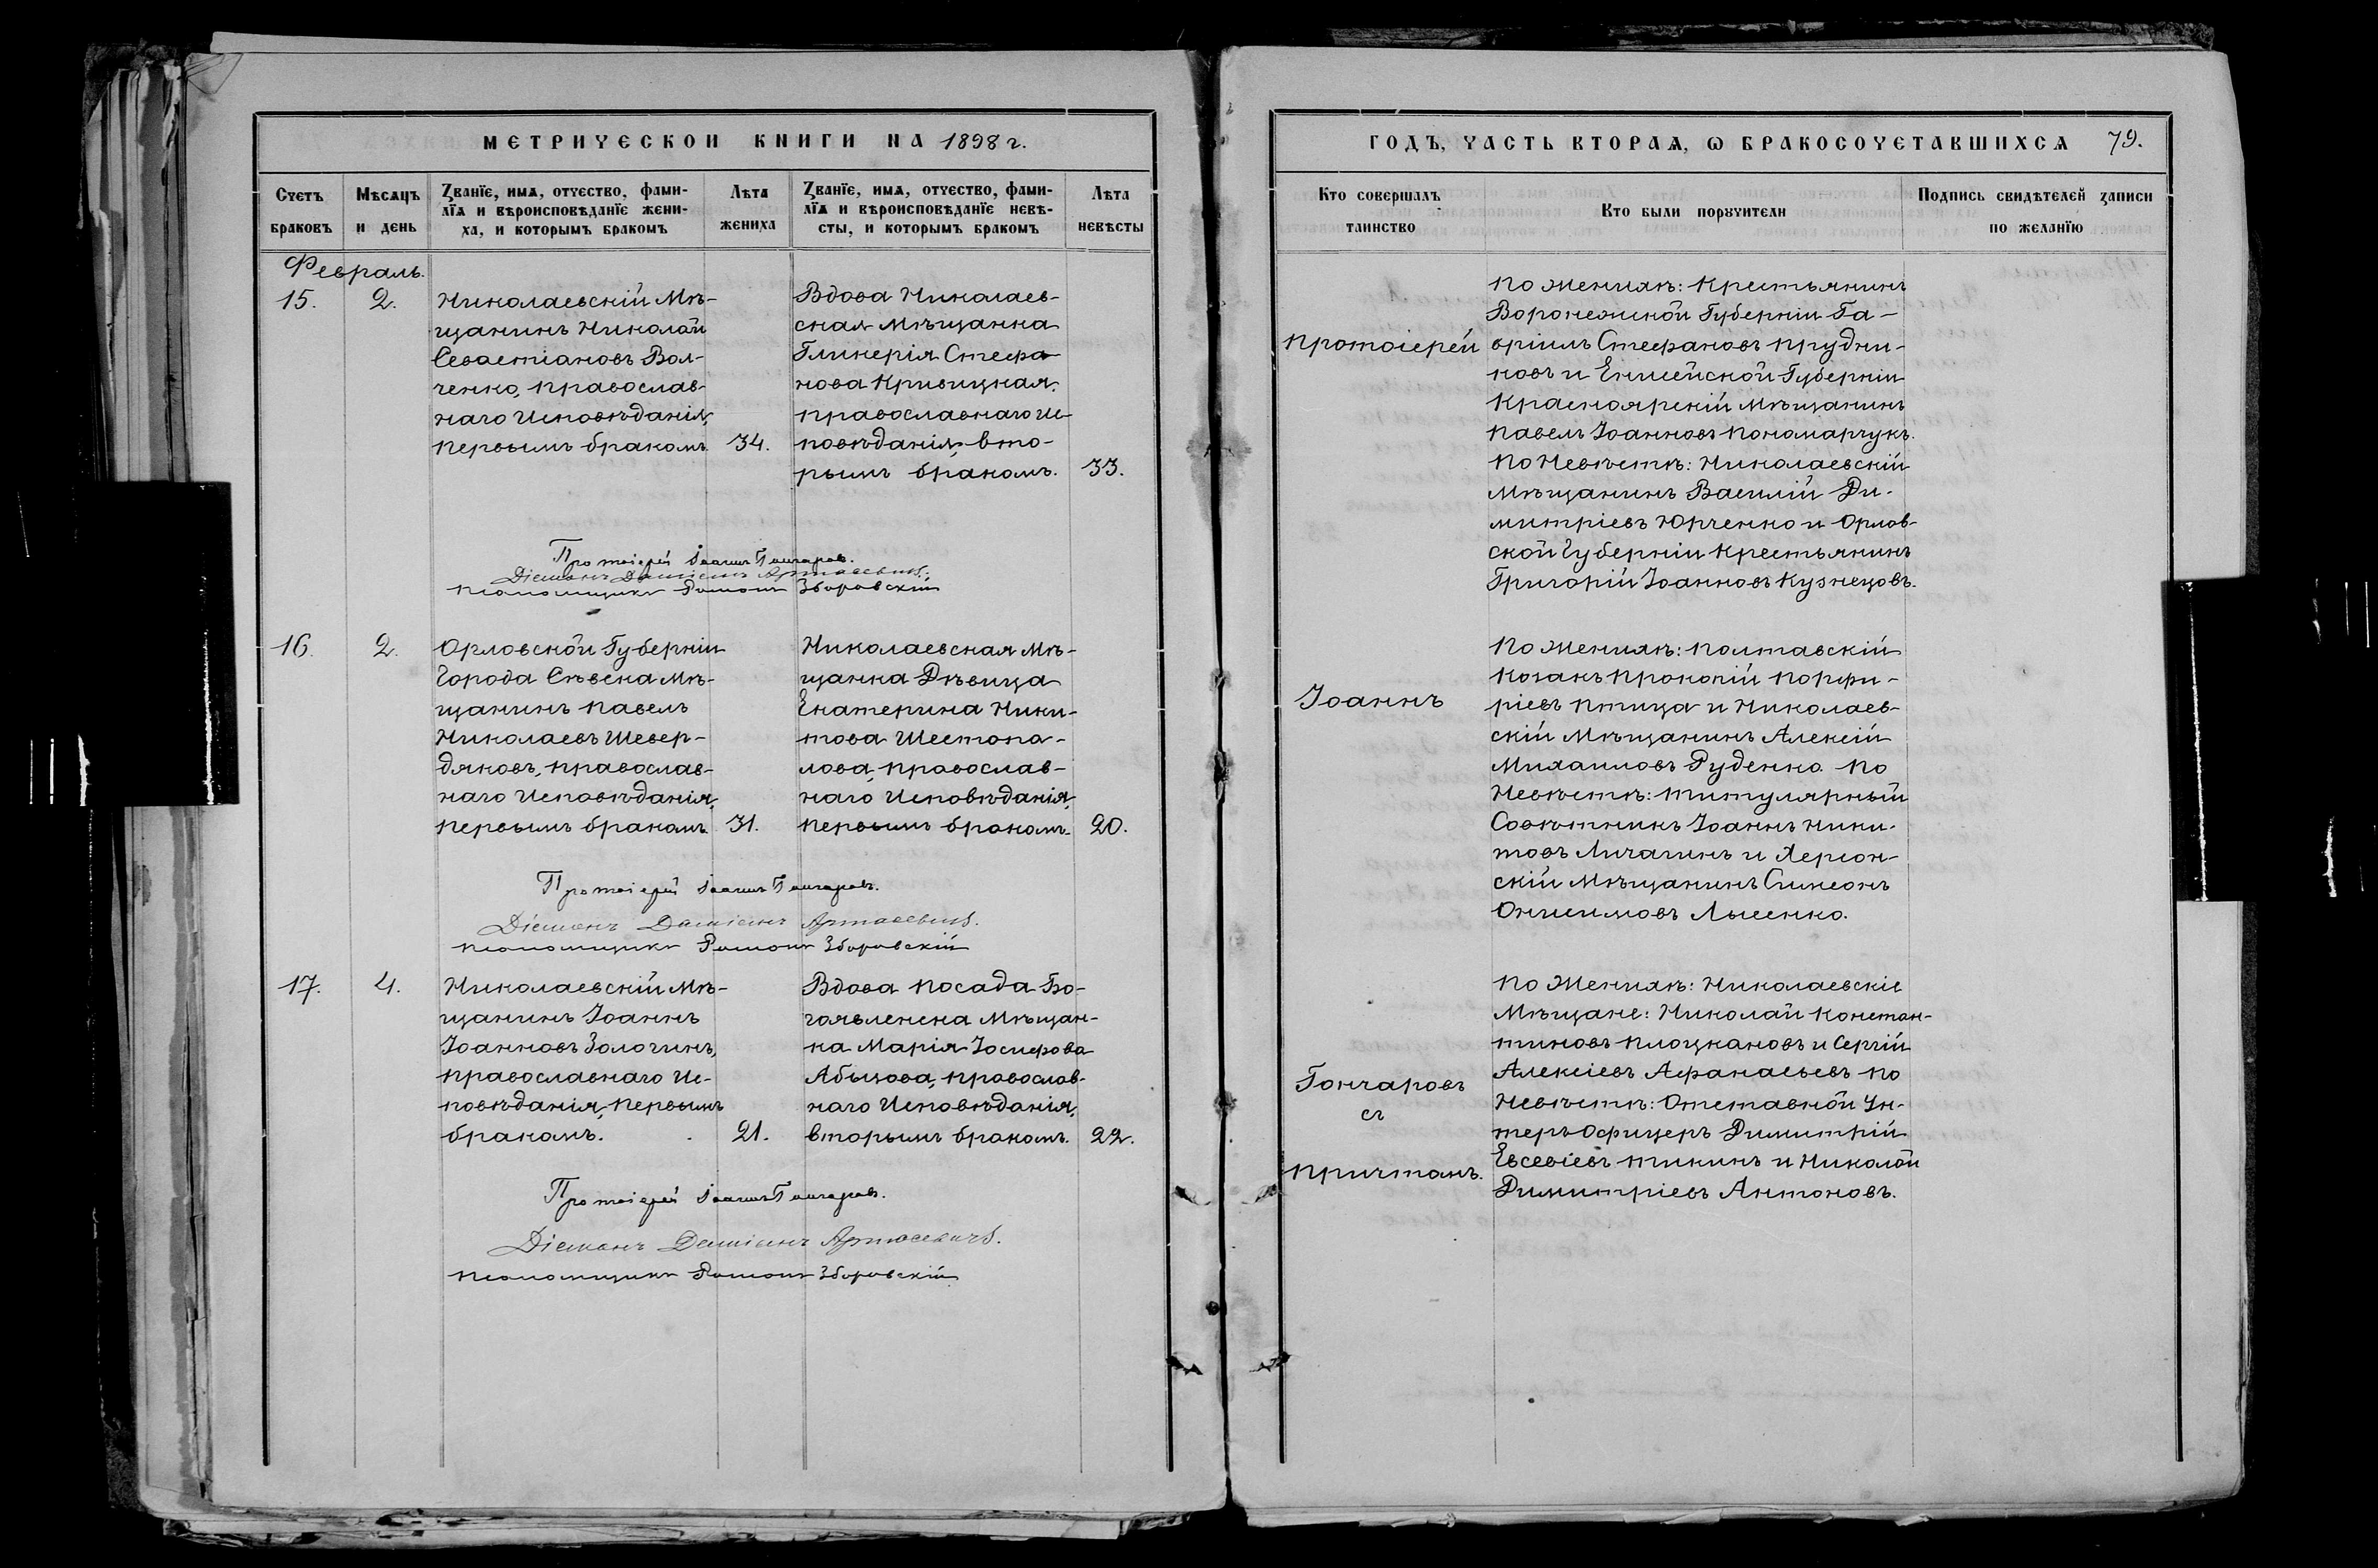 МЕТРИЧЕСКОИ КНИГИ НА 1898 г.
Счетъ браковъ
Мѣсяцъ и день
Званїе, имѧ, отчество, фами-
лїѧ и вѣроисповѣданїе жени-
ха, и которымъ бракомъ
Лѣта жениха
Званїе, имѧ, отчество, фами-
лїѧ и вѣроисповѣданїе невѣ-
сты, и которымъ бракомъ
Лѣта невѣсты
Февраль.
15.
2.
Николаевскій Мѣ-
щанинъ Николай
Севастіановъ Вол-
ченко, православ-
наго Исповѣданія,
первымъ бракомъ.
34.
Вдова Николаев-
ская мѣщанка
Гликерія Стефа-
нова Кривицкая,
православнаго Ис-
повѣданія, вто-
рымъ бракомъ.
33.
Протоіерей Іоаннъ Гончаровъ.
Діаконъ Даміанъ Артасевичъ.
Псаломщикъ Романъ Зборовскій
16.
2.
Орловской Губерніи
Города Сѣвска Мѣ-
щанинъ Павелъ
Николаевъ Шевер-
дяковъ, православ-
наго Исповѣданія,
первымъ бракомъ.
31.
Николаевская Мѣ-
щанка Дѣвица
Екатерина Ники-
това Шестопа-
лова, православ-
наго Исповѣданія,
первымъ бракомъ.
20.
Протоіерей Іоаннъ Гончаровъ.
Діаконъ Даміанъ Артасевичъ.
Псаломщикъ Романъ Зборовскій
17.
4.
Николаевскій Мѣ-
щанинъ Іоаннъ
Іоанновъ Золочинъ,
православнаго Ис-
повѣданія, первымъ
бракомъ.
21.
Вдова посада Бо-
гоявленска Мѣщан-
ка Марія Іосифова
Абызова, православ-
наго Исповѣданія,
вторымъ бракомъ.
22.
Протоіерей Іоаннъ Гончаровъ.
Діаконъ Даміанъ Артасевичъ.
Псаломщикъ Романъ Зборовскій
ГОДЪ, ЧАСТЬ ВТОРАѦ, Ѡ БРАКОСОЧЕТАВШИХСѦ 79.
Кто совершалъ
таинство
Кто были порꙋчители
Подпись свидѣтелей записи
по желанїю
Протоіерей
Іоаннъ
Гончаровъ
съ
причтомъ.
По Женихѣ: Крестьянинъ
Воронежской Губерніи Га-
вріилъ Стефановъ Прудни-
ковъ и Енисейской Губерніи
Красноярскій Мѣщанинъ
Павелъ Іоанновъ Пономарчукъ.
По Невѣстѣ: Николаевскій
Мѣщанинъ Василій Ди-
митріевъ Юрченко и Орлов-
ской Губерніи Крестьянинъ
Григорій Іоанновъ Кузнецовъ.
По Женихѣ: Полтавскій
Козакъ Прокопій Порфи-
ріевъ Птица и Николаев-
скій Мѣщанинъ Алексій
Михаиловъ Руденко. По
Невѣстѣ: Титулярный
Совѣтникъ Іоаннъ Ники-
товъ Личагинъ и Херсон-
скій Мѣщанинъ Симеонъ
Онисимовъ Лысенко.
По Женихѣ: Николаевскіе
Мѣщане: Николай Констан-
тиновъ Плоцкановъ и Сергій
Алексіевъ Афанасьевъ По
Невѣстѣ: Отставной Ун-
теръ Офицеръ Димитрій
Евсевіевъ Тикинъ и Николай
Димитріевъ Антоновъ.